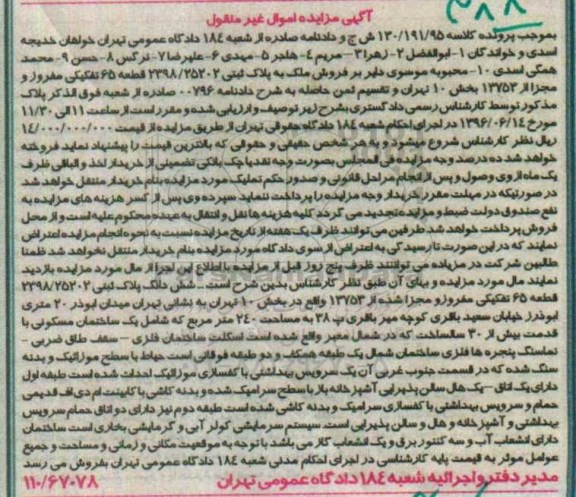 ۳۸۸
آگهی مزایده اموال غیر منقول
بموجب پرونده کلاسه ۱۳۰/۱۹۱/۹۵ ش ج و دادنامه صادره از شعبه ۱۸٤ دادگاه عمومی تهران خواهان خدیجه
اسدی و خواندگان ۱-ابوالفضل ۲- زهرا ۳- مریم ٤- هاجر ۵-مهدی ۶-علیرضا ۷-نرگس ۸-حسن ۹-محمد
همگی اسدی ۱۰-محبوبه موسوی دایر بر فروش ملک به پلاک ثبتی ۲۳۹۸/۲۵۲۰۲ قطعه ۶۵ تفکیکی مفروز و
مجزا از ۱۳۷۵۳ بخش ۱۰ تهران و تقسیم ثمن حاصله به شرح دادنامه ۰۰۷۹۶ صادره از شعبه فوق الذکر پلاک
مذکور توسط کارشناس رسمی دادگستری بشرح زیر توصیف و ارزیابی شده و مقرر است از ساعت ۱۱ الی ۱۱/۳۰
مورخ ۱۳۹۶/۰۶/۱٤ در اجرای احکام شعبه ۱۸٤ دادگاه حقوقی تهران از طریق مزایده از قیمت ۱٤/۰۰۰/۰۰۰/۰۰۰
ریال نظر کارشناس شروع میشود و به هر شخص حقیقی و حقوقی که بالاترین قیمت را پیشنهاد نماید فروخته
خواهد شد ده درصد وجه مزایده فی المجلس بصورت وجه نقد یا چک بانکی تضمینی از خریدار اخذ و الباقی ظرف
یک ماه از وی وصول و پس از انجام مراحل قانونی و صدور حکم تملیک مورد مزایده بنام خریدار منتقل خواهد شد
در صورتیکه در مهلت مقرر خریدار وجه مزایده را پرداخت ننماید سپرده وی پس از کسر هزینه های مزایده به
نفع صندوق دولت ضبط و مزایده تجدید می گردد کلیه هزینه ها نقل و انتقال به عهده محکوم علیه است و از محل
فروش پرداخت خواهد شد طرفین می توانند ظرف یک هفته از تاریخ مزایده نسبت به نحوه انجام مزایده اعتراض
نمایند که در این صورت تا رسیدگی به اعتراض از سوی دادگاه مورد مزایده بنام خریدار منتقل نخواهد شد ظمنا
طالبین شرکت در مزایاده می توانند ظرف پنج روز قبل از مزایده با اطلاع این اجرا از مال مورد مزایده بازدید
نمایند مال مورد مزایده و بهای آن طبق نظر کارشناس بدین شرح است - شش دانگ پلاک ثبتی ۲۳۹۸/۲۵۲۰۲
قطعه ۶۵ تفکیکی مفروز و مجزا شده از ۱۳۷۵۳ واقع در بخش ۱۰ تهران به نشانی تهران میدان ابوذر ۲۰ متری
ابوذر خیابان سعید باقری کوچه میر باقری پ ۳۸ به مساحت ۲٤۰ متر مربع که شامل یک ساختمان مسکونی با
قدمت بیش از ۳۰ سالساخت که در شمال معبر واقع شده است اسکلت ساختمان فلزی – سقف طاق ضربی -
نماسنگ پنجره ها فلزی ساختمان شمال یک طبقه همکف و دو طبقه فوقانی است حیاط با سطح موزائیک و بدنه
سنگ شده که در قسمت جنوب غربی آن یک سرویس بهداشتی با کفسازی موزائیک احداث شده است طبقه اول
دارای یک اتاق – یک هال سالن پذیرایی آشپزخانه باز با سطح سرامیک شده و بدنه کاشی با کابینت ام دی اف قدیمی
حمام و سرویس بهداشتی با کفسازی سرامیک و بدنه کاشی شده است طبقه دوم نیز دارای دو اتاق حمام سرویس
بهداشتی و آشپزخانه و هال و سالن پذیرایی است. سیستم سرمایشی کولر آبی و گرمایشی بخاری است ساختمان
دارای انشعاب آب و سه کنتور برق و یک انشعاب گاز می باشد با توجه به موقعیت مکانی و زمانی و مساحت و جمیع
عوامل موثر به قیمت پایه کارشناسی در اجرای احکام مدنی شعبه ۱۸٤ دادگاه عمومی تهران بفروش می رسد
مدیر دفتر و اجرائیه شعبه ۱۸٤ دادگاه عمومی تهران ۱۱۰/۶۷۰۷۸